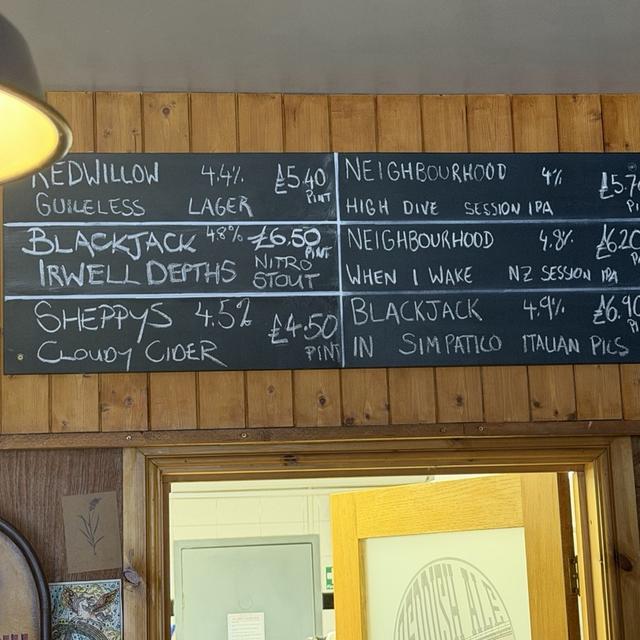 REDWILLOW 4.4% £5.40 PINT
GUILELESS LAGER
BLACKJACK 4.8% £6.50 PINT
IRWELL DEPTHS NITRO STOUT
SHEPPYS 4.5% £4.50 PINT
CLOUDY CIDER
NEIGHBOURHOOD 4%
HIGH DIVE SESSION IPA
NEIGHBOURHOOD 4.8% £6.20
WHEN I WAKE NZ SESSION IPA
BLACKJACK 4.9% £6.90
IN SIMPATICO ITALIAN PILS
ALE